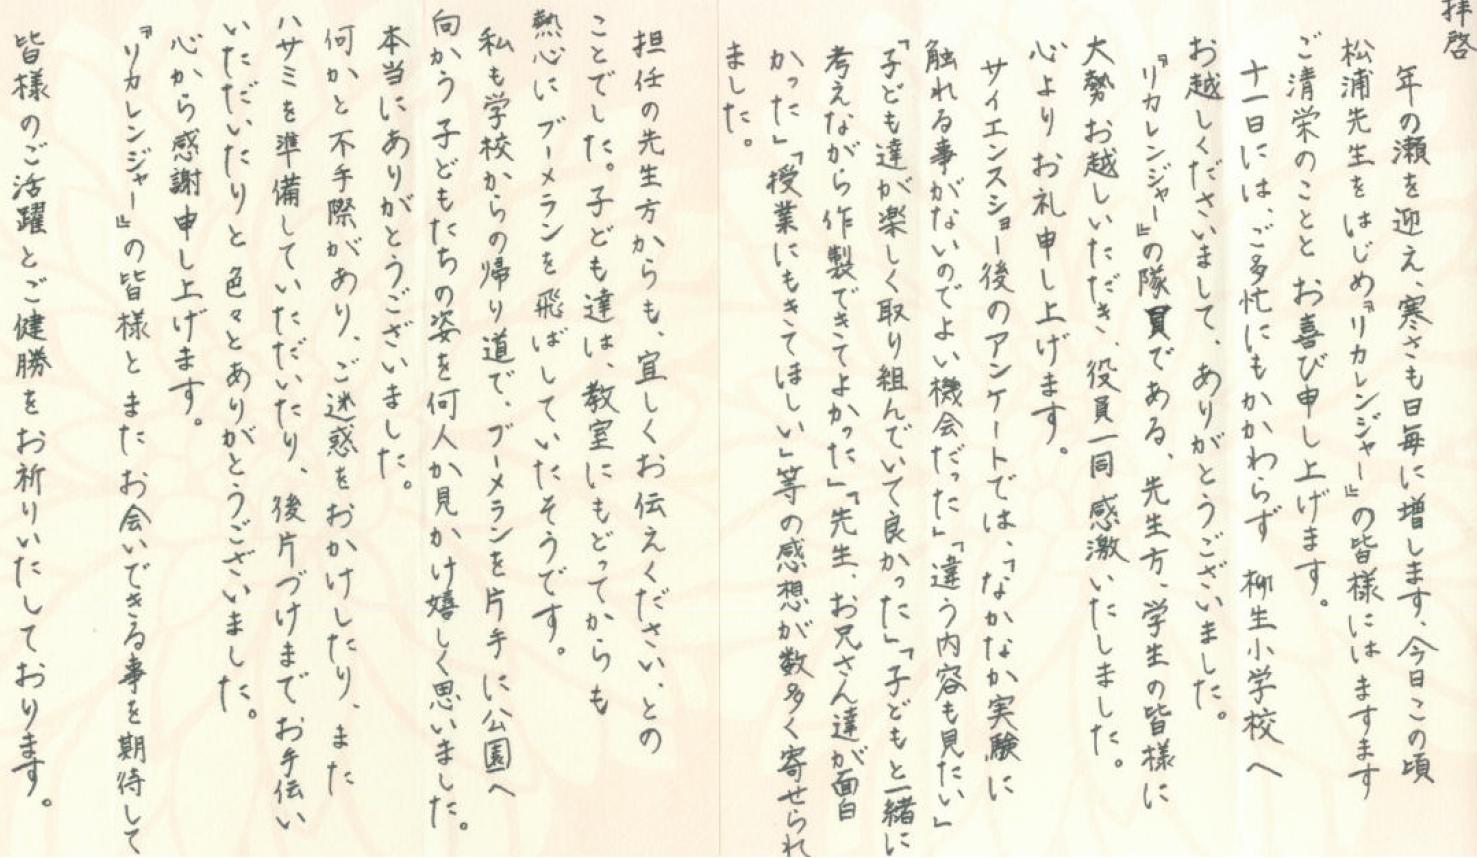 拝啓
年の瀬を迎え、寒さも日毎に増します、今日この頃
松浦先生をはじめ『リカレンジャー』の皆様にはますます
ご清栄のこととお喜び申し上げます。
十一日には、ご多忙にもかかわらず 柳生小学校へ
お越しくださいまして、ありがとうございました。
『リカレンジャー』の隊員である、先生方、学生の皆様に
大勢お越しいただき、役員一同 感激いたしました。
心よりお礼申し上げます。
サイエンスショー後のアンケートでは、「なかなか実験に
触れる事がないのでよい機会だった」「違う内容も見たい」
「子ども達が楽しく取り組んでいて良かった」「子どもと一緒に
考えながら作製できてよかった」「先生、お兄さん達が面白
かった」「授業にもきてほしい」等の感想が数多く寄せられ
ました。
担任の先生方からも、宜しくお伝えください、との
ことでした。子ども達は、教室にもどってからも
熱心にブーメランを飛ばしていたそうです。
私も学校からの帰り道で、ブーメランを片手に公園へ
向かう子どもたちの姿を何人か見かけ嬉しく思いました。
本当にありがとうございました。
何かと不手際があり、ご迷惑をおかけしたり、また
ハサミを準備していただいたり、後片づけまでお手伝い
いただいたりと色々とありがとうございました。
心から感謝申し上げます。
『リカレンジャー』の皆様とまたお会いできる事を期待して
皆様のご活躍とご健勝をお祈りいたしております。